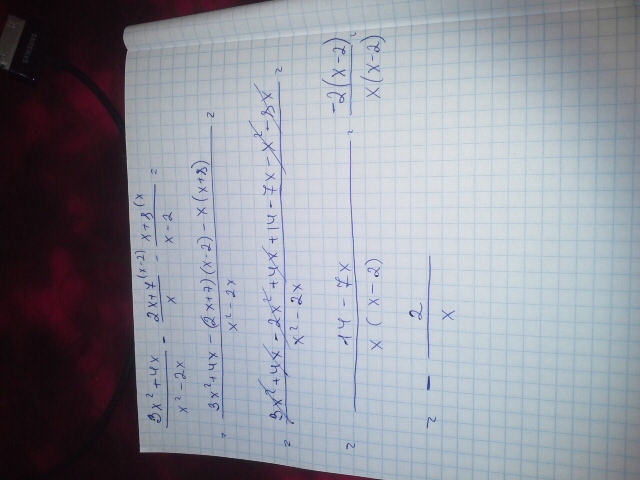 (3x²+4x)/(x²-2x) - (2x+7^(x-2))/x - (x+8^(x)/(x-2) =
= (3x²+4x-(2x+7)(x-2)-x(x+8))/(x²-2x) =
= (3x²+4x-2x²+4x+14-7x-x²-8x)/(x²-2x) =
= (14-7x)/(x(x-2)) = (-2(x-2))/(x(x-2)) =
= - 2/x